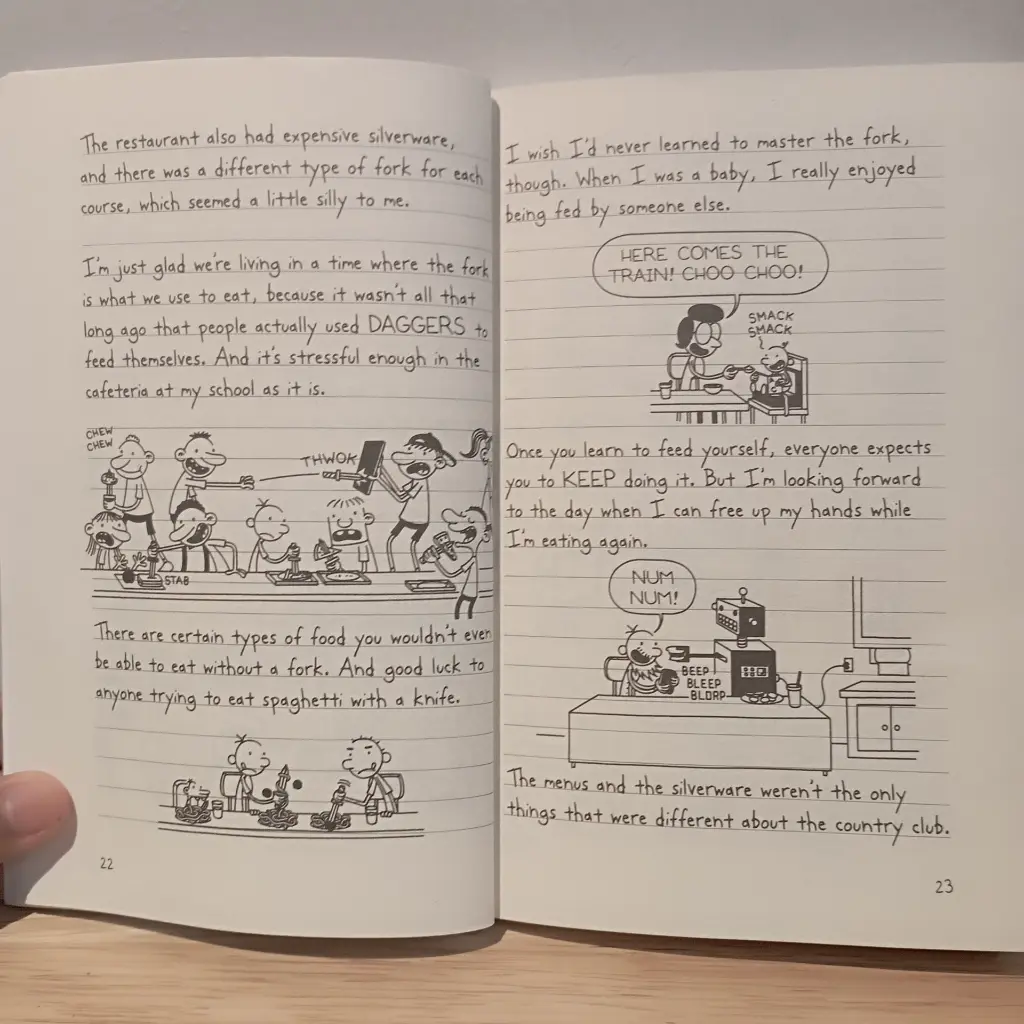 The restaurant also had expensive silverware,
and there was a different type of fork for each
course, which seemed a little silly to me.
I'm just glad we're living in a time where the fork
is what we use to eat, because it wasn't all that
long ago that people actually used DAGGERS to
feed themselves. And it's stressful enough in the
cafeteria at my school as it is.
CHEW
CHEW
THWOK
STAB
There are certain types of food you wouldn't even
be able to eat without a fork. And good luck to
anyone trying to eat spaghetti with a knife.
22
I wish I'd never learned to master the fork,
though. When I was a baby, I really enjoyed
being fed by someone else.
HERE COMES THE
TRAIN! CHOO CHOO!
SMACK
SMACK
Once you learn to feed yourself, everyone expects
you to KEEP doing it. But I'm looking forward
to the day when I can free up my hands while
I'm eating again.
NUM
NUM!
BEEP
BLEEP
BLORP
The menus and the silverware weren't the only
things that were different about the country club.
23